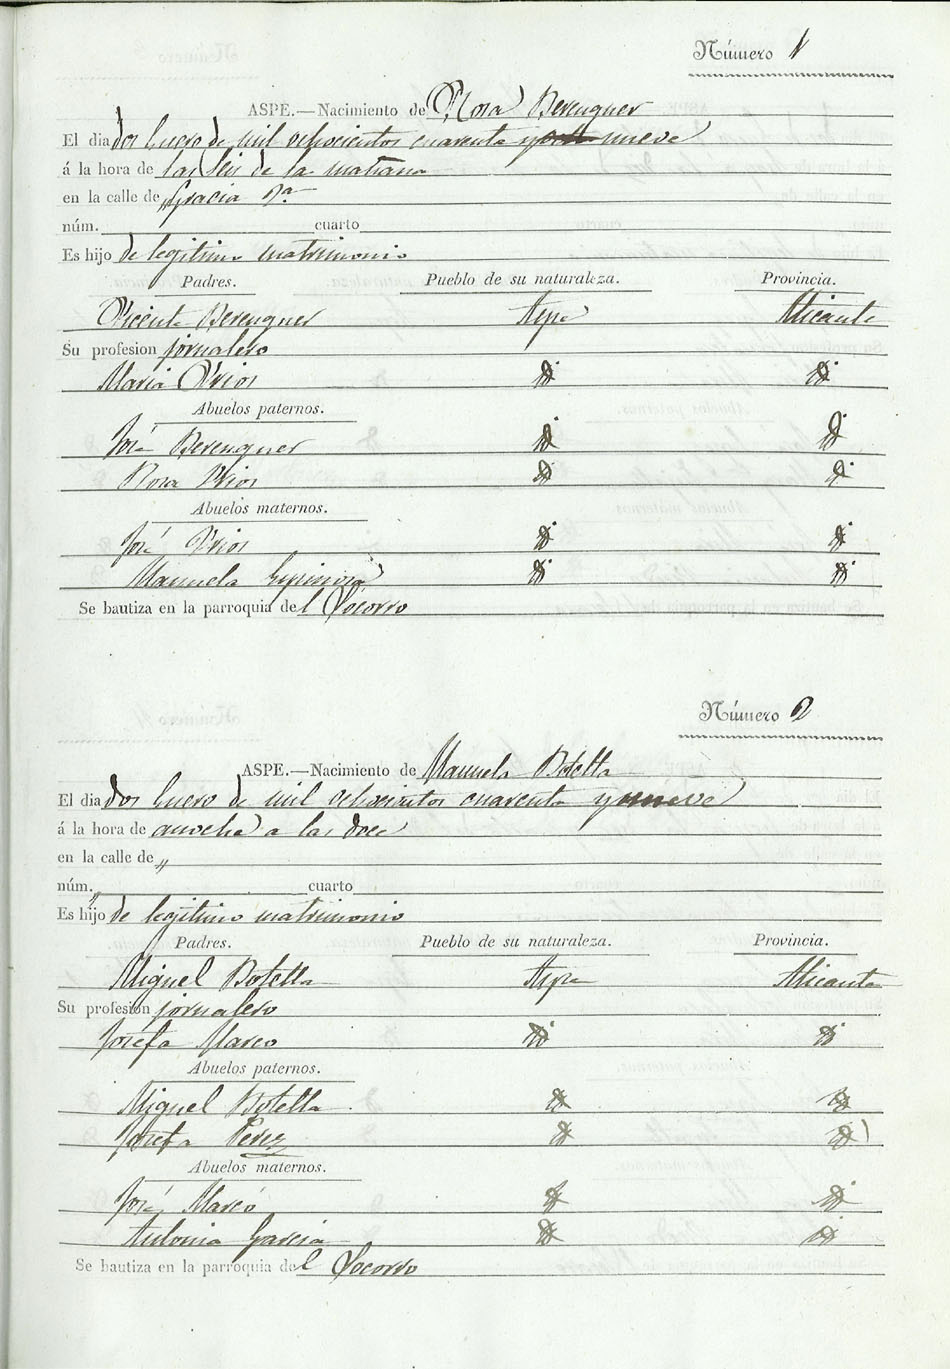 Número 1
ASPE.—Nacimiento de Rosa Berenguer
El dia dos Enero de mil ochocientos cuarenta y nueve
á la hora de las seis de la mañana
en la calle de Gracia 2ª
núm. cuarto
Es hijo de legitimo matrimonio
Padres. Pueblo de su naturaleza. Provincia.
Vicente Berenguer Aspe Alicante
Su profesion jornalero
Maria
Abuelos paternos.
José Berenguer
Rosa
Abuelos maternos.
José
Manuela Espinosa
Se bautiza en la parroquia del Socorro
Número 2
ASPE.—Nacimiento de Manuela Botella
El dia dos Enero de mil ochocientos cuarenta y nueve
á la hora de anoche a las doce
en la calle de "
núm. " cuarto
Es hijo de legitimo matrimonio
Padres. Pueblo de su naturaleza. Provincia.
Miguel Botella Aspe Alicante
Su profesion jornalero
Josefa Marco
Abuelos paternos.
Miguel Botella
Josefa Perez
Abuelos maternos.
José Marcó
Antonia Garcia
Se bautiza en la parroquia del Socorro